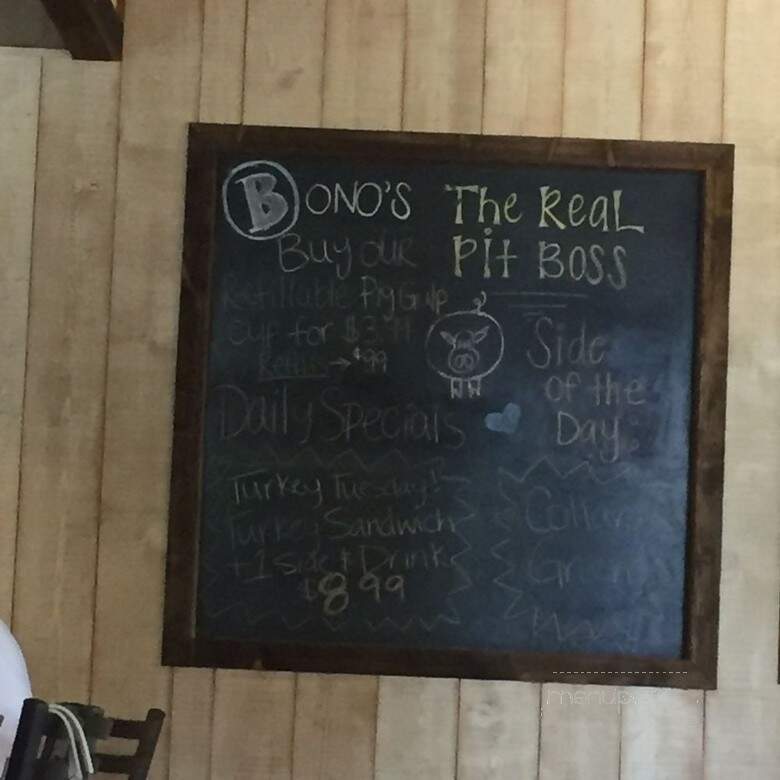 BONO'S
Buy our
Refillable Pig Gulp
Cup for $3.99
Refills → $.99
The Real
Pit Boss
Daily Specials
Turkey Tuesday!
Turkey Sandwich
+1 side + Drink
$8.99
Side
of the
Day:
Collard
Greens
menupix